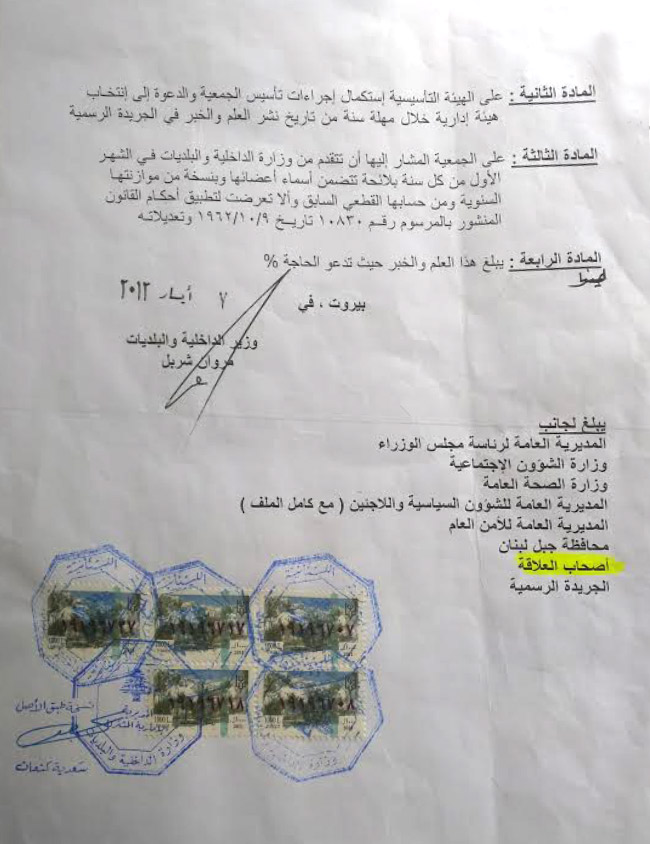 المادة الثانية : على الهيئة التأسيسية إستكمال إجراءات تأسيس الجمعية والدعوة إلى إنتخاب
هيئة إدارية خلال مهلة سنة من تاريخ نشر العلم والخبر في الجريدة الرسمية
المادة الثالثة : على الجمعية المشار إليها أن تتقدم من وزارة الداخلية والبلديات في الشهر
الأول من كل سنة بلائحة تتضمن أسماء أعضائها وبنسخة عن موازنتها
السنوية ومن حسابها القطعي السابق وألا تعرضت لتطبيق أحكام القانون
المنشور بالمرسوم رقم ١٠٨٣٠ تاريخ ١٩٦٢/١٠/٩ وتعديلاته
المادة الرابعة : يبلغ هذا العلم والخبر حيث تدعو الحاجة %
بيروت ، في ٧ أيار ٢٠١٢
وزير الداخلية والبلديات
مروان شربل
يبلغ لجانب
المديرية العامة لرئاسة مجلس الوزراء
وزارة الشؤون الإجتماعية
وزارة الصحة العامة
المديرية العامة للشؤون السياسية واللاجئين ( مع كامل الملف )
المديرية العامة للأمن العام
محافظة جبل لبنان
أصحاب العلاقة
الجريدة الرسمية
نسخة طبق الأصل
وزارة الداخلية والبلديات
سعدية كنعان